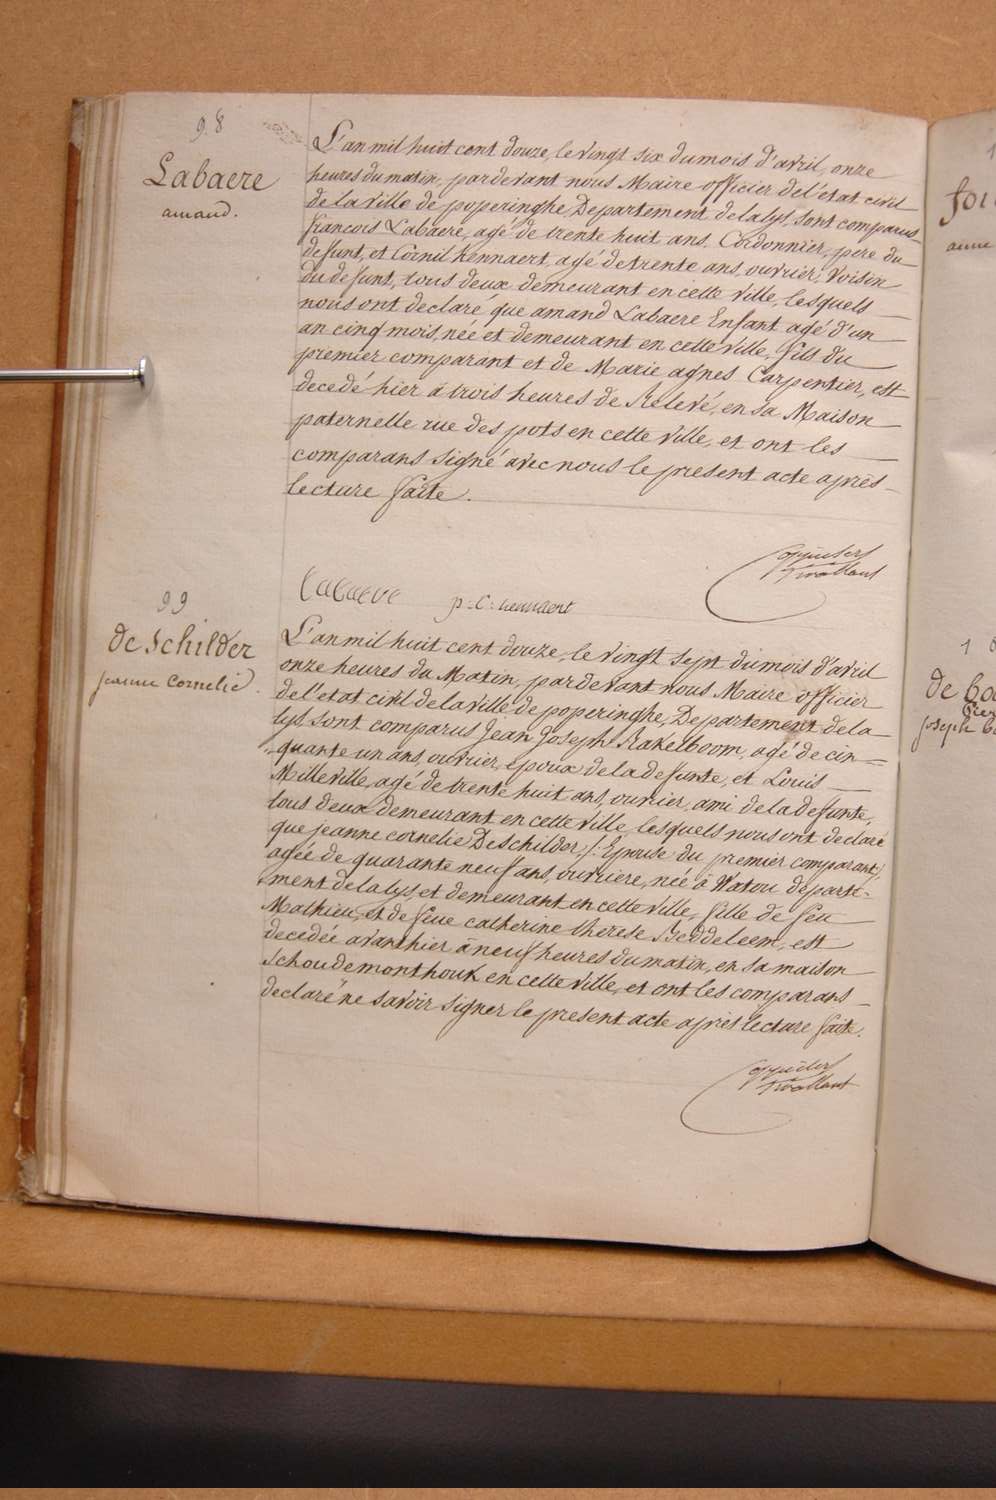 98
Labaere
amand.
L'an mil huit cent douze, le vingt six du mois d'avril, onze
heures du matin, pardevant nous Maire officier de l'état civil
de la ville de poperinghe, Departement de la lys, sont comparus
françois Labaere, agé de trente huit ans, Cordonnier, pere du
defunt, et Cornil Kennaert, agé de trente ans, ouvrier, Voisin
du defunt, tous deux demeurant en cette ville, lesquels
nous ont declaré que amand Labaere Enfant agé d'un
an cinq mois, née et demeurant en cette ville, fils du
premier comparant et de Marie agnes Carpentier, est
decedé hier à trois heures de Relevé, en sa Maison
paternelle rue des pots en cette ville, et ont les
comparans signé avec nous le present acte après
lecture faite.
Labaere
p:C: kennaert
99
de Schilder
jeanne Cornelie.
L'an mil huit cent douze, le vingt sept du mois d'avril
onze heures du Matin, pardevant nous Maire officier
de l'etat civil de la ville de poperinghe, Departement de la
lys sont comparus Jean Joseph Rakelboom, agé de cin=
=quante un ans, ouvrier, epoux de la defunte, et Louis
Milleville, agé de trente huit ans, ouvrier, ami de la defunte,
tous deux demeurant en cette ville, lesquels nous ont declaré
que jeanne cornelie DeSchilder /: Epouse du premier comparant:/
agée de quarante neuf ans, ouvriere, née à Watou departe=
=ment de la lys, et demeurant en cette ville, fille de feu
Mathieu, et de feue catherine therese Beddeleem, est
decedée avanthier à neuf heures du matin, en sa maison
Schoudemonthouk en cette ville, et ont les comparans
declaré ne savoir signer le present acte après lecture faite.